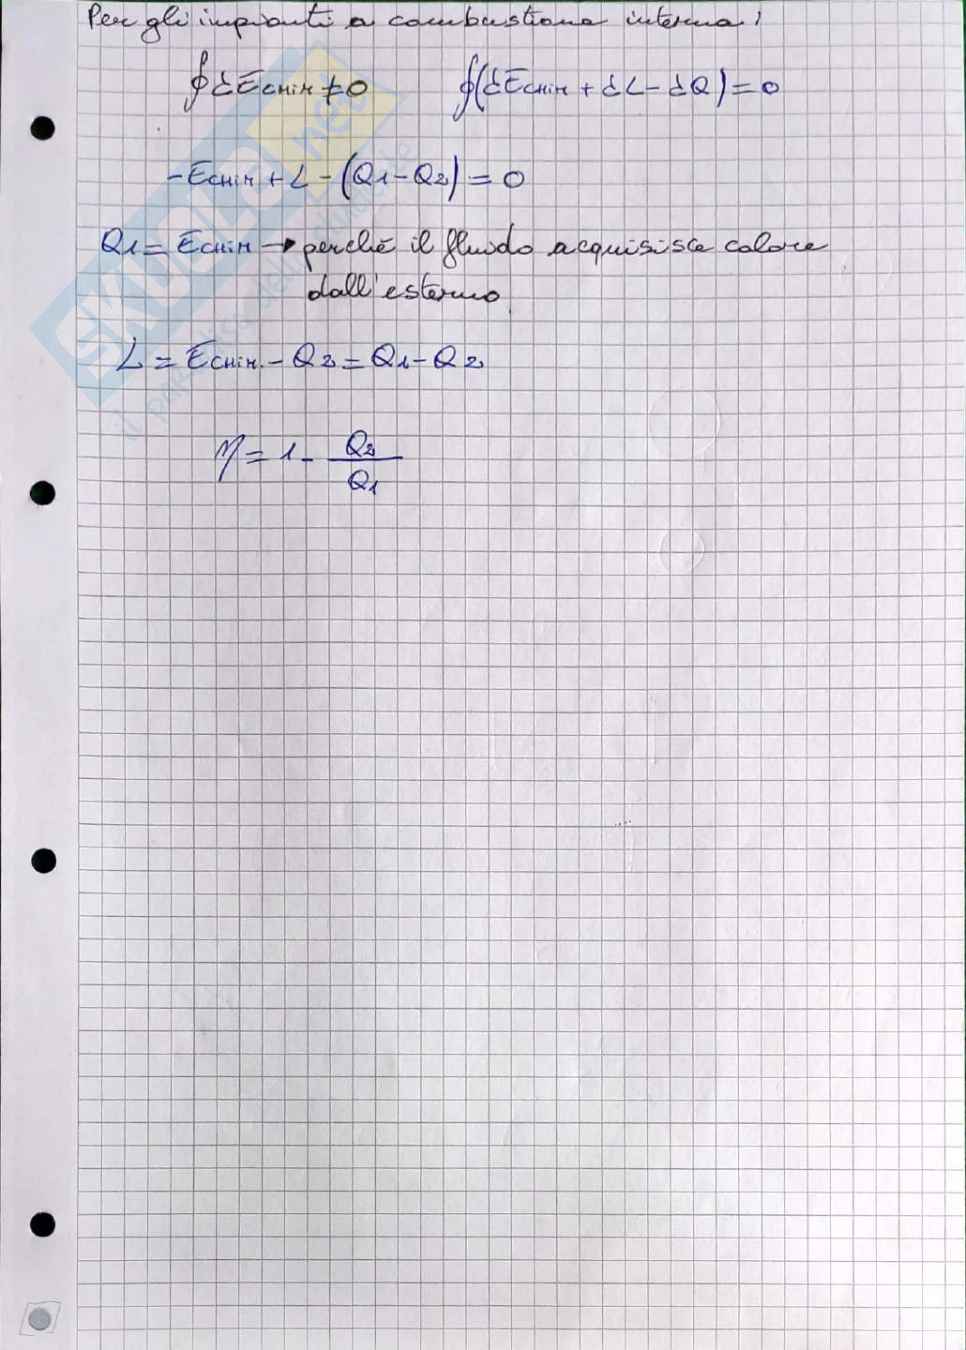 Per gli impianti a combustione interna:
∮dEchim ≠ 0 ∮(dEchim + dL - dQ) = 0
-Echim + L - (Q1 - Q2) = 0
Q1 = Echim → perché il fluido acquisisce calore
dall'esterno
L = Echim. - Q2 = Q1 - Q2
η = 1 - Q2/Q1
SKUOLA.net